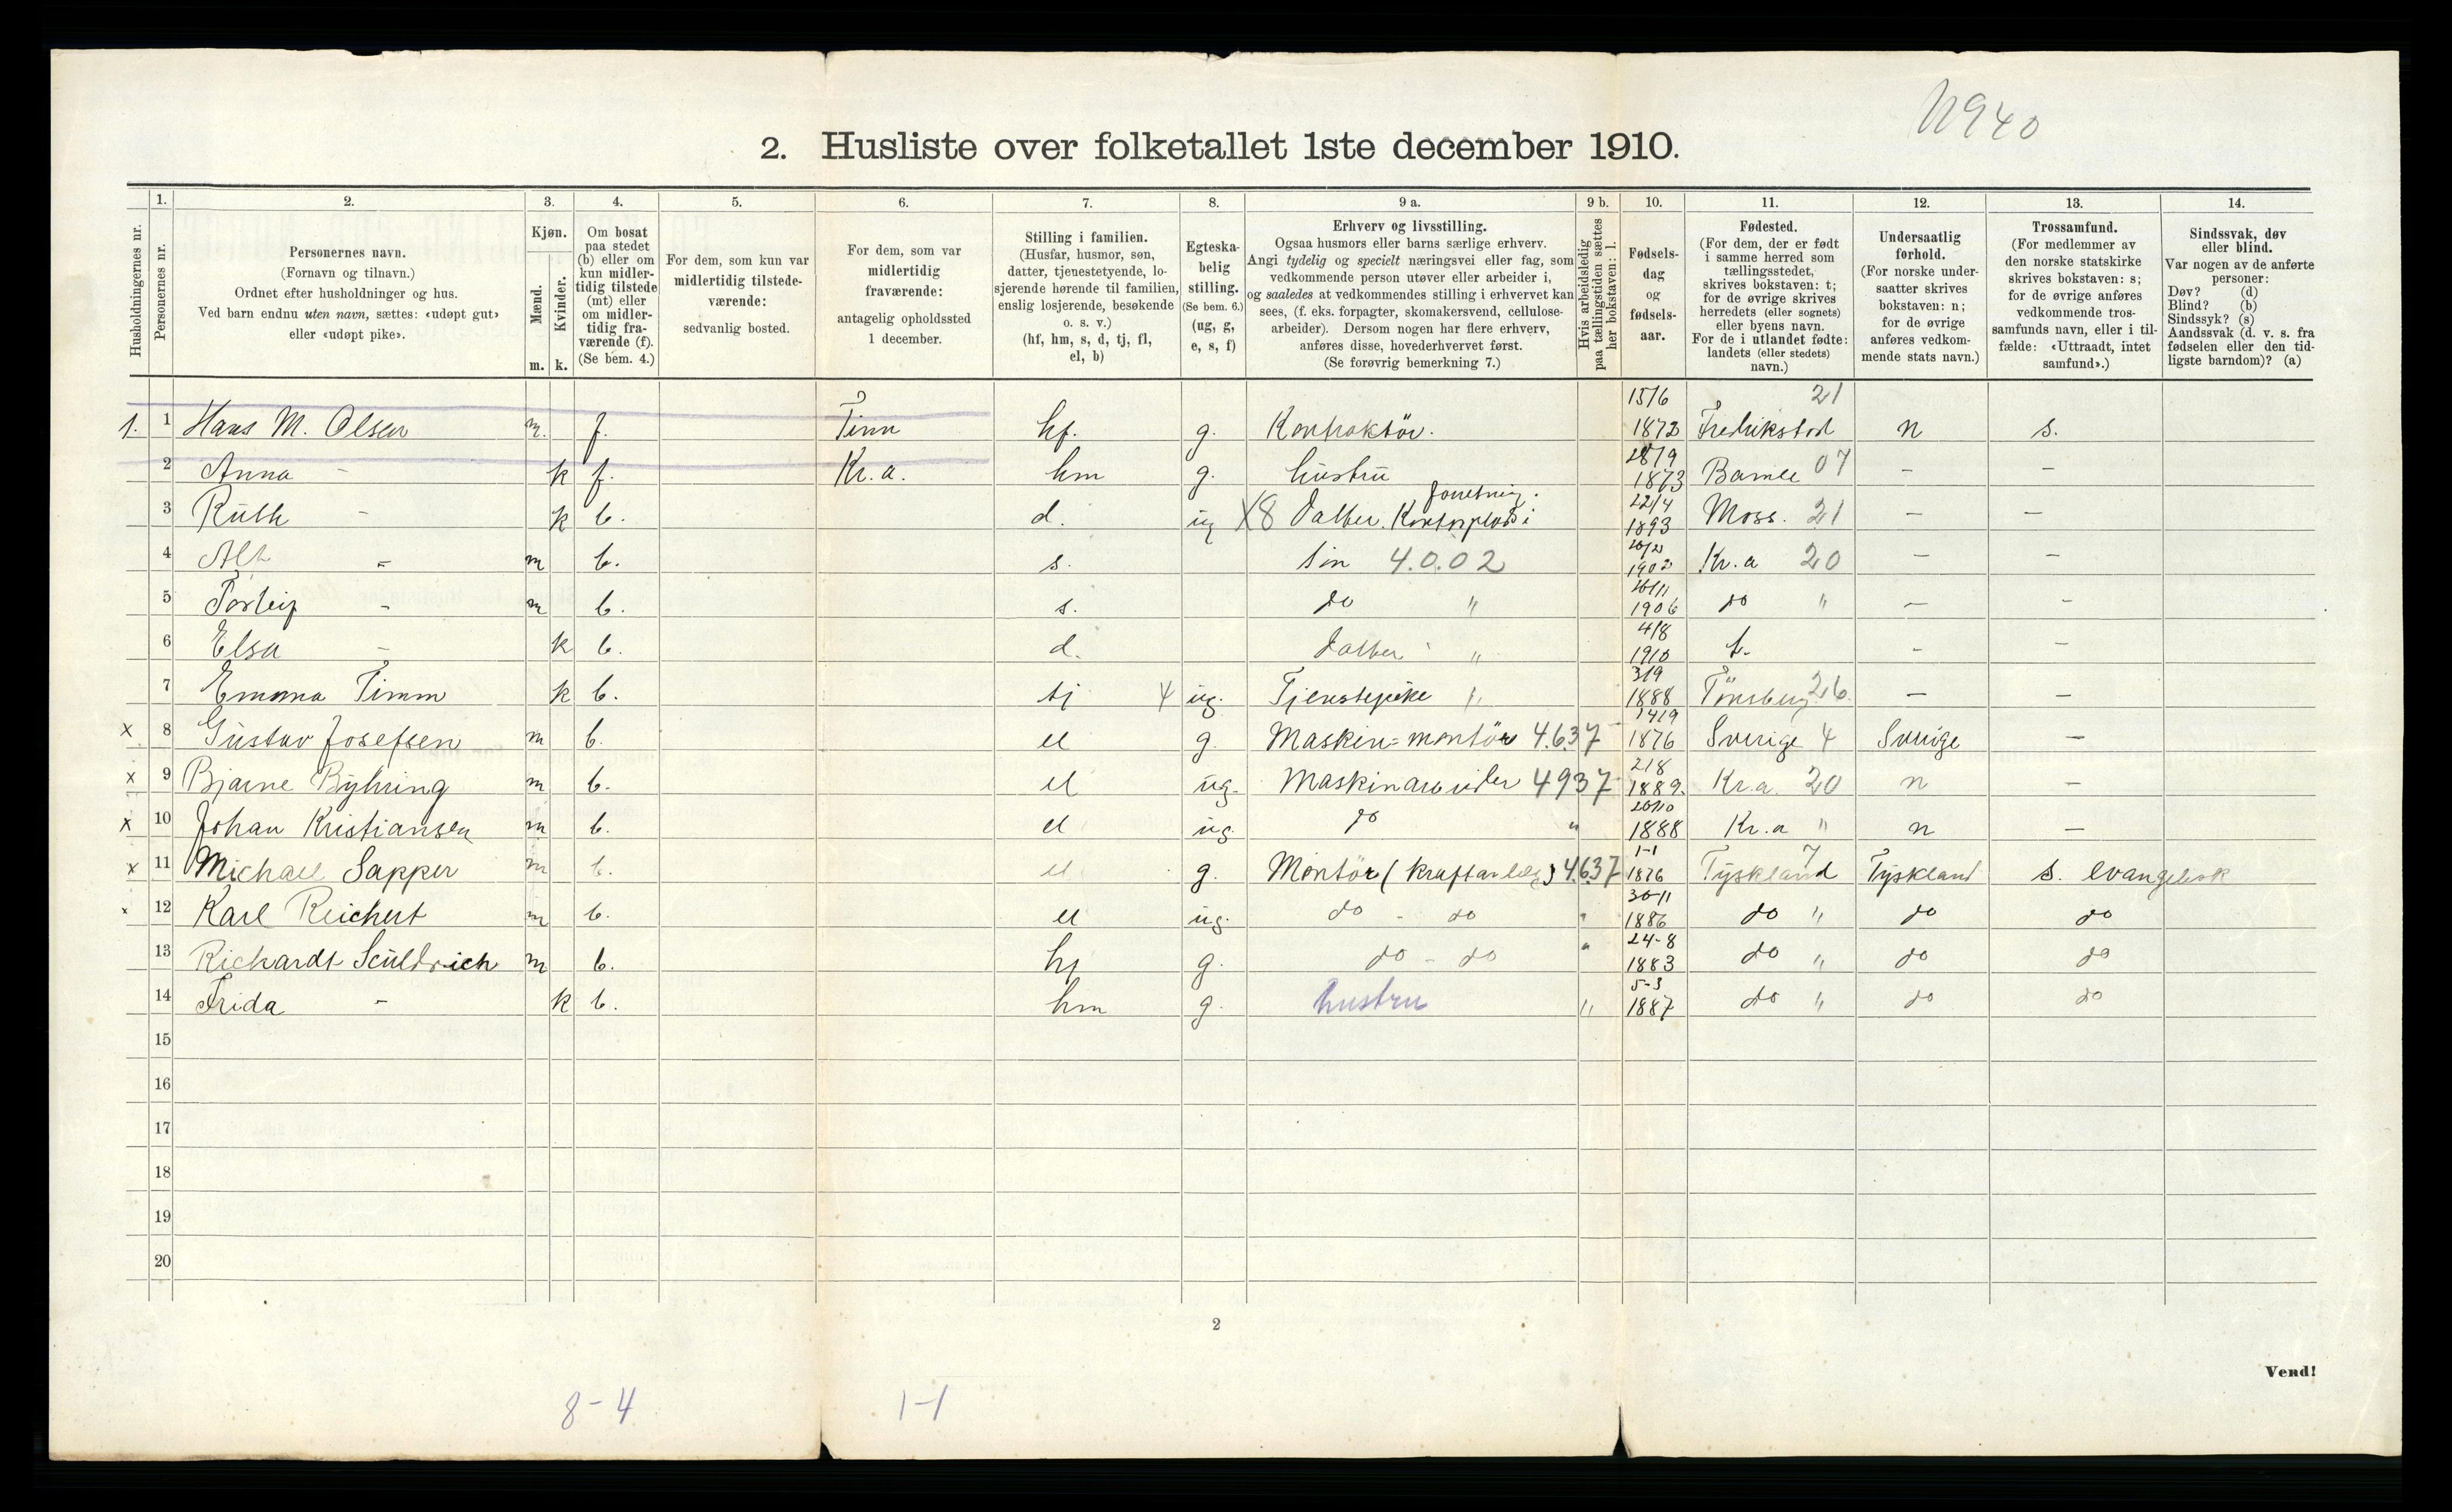 N940
2. Husliste over folketallet 1ste december 1910.
1. 2. 3. 4. 5. 6. 7. 8. 9 a. 9 b. 10. 11. 12. 13. 14.
Husholdningernes nr.
Personernes nr.
Personernes navn.
(Fornavn og tilnavn.)
Ordnet efter husholdninger og hus.
Ved barn endnu uten navn, sættes: «udøpt gut»
eller «udøpt pike».
Kjøn.
Mænd.
Kvinder.
m. k.
Om bosat
paa stedet
(b) eller om
kun midler-
tidig tilstede
(mt) eller
om midler-
tidig fra-
værende (f).
(Se bem. 4.)
For dem, som kun var
midlertidig tilstede-
værende:
sedvanlig bosted.
For dem, som var
midlertidig
fraværende:
antagelig opholdssted
1 december.
Stilling i familien.
(Husfar, husmor, søn,
datter, tjenestetyende, lo-
sjerende hørende til familien,
enslig losjerende, besøkende
o. s. v.)
(hf, hm, s, d, tj, fl,
el, b)
Egteska-
belig
stilling.
(Se bem. 6.)
(ug, g,
e, s, f)
Erhverv og livsstilling.
Ogsaa husmors eller barns særlige erhverv.
Angi tydelig og specielt næringsvei eller fag, som
vedkommende person utøver eller arbeider i,
og saaledes at vedkommendes stilling i erhvervet kan
sees, (f. eks. forpagter, skomakersvend, cellulose-
arbeider). Dersom nogen har flere erhverv,
anføres disse, hovederhvervet først.
(Se forøvrig bemerkning 7.)
Hvis arbeidsledig
paa tællingstiden sættes
her bokstaven: l.
Fødsels-
dag
og
fødsels-
aar.
Fødested.
(For dem, der er født
i samme herred som
tællingsstedet,
skrives bokstaven: t;
for de øvrige skrives
herredets (eller sognets)
eller byens navn.
For de i utlandet fødte:
landets (eller stedets)
navn.)
Undersaatlig
forhold.
(For norske under-
saatter skrives
bokstaven: n;
for de øvrige
anføres vedkom-
mende stats navn.)
Trossamfund.
(For medlemmer av
den norske statskirke
skrives bokstaven: s;
for de øvrige anføres
vedkommende tros-
samfunds navn, eller i til-
fælde: «Uttraadt, intet
samfund».)
Sindssvak, døv
eller blind.
Var nogen av de anførte
personer:
Døv? (d)
Blind? (b)
Sindssyk? (s)
Aandssvak (d. v. s. fra
fødselen eller den tid-
ligste barndom)? (a)
1. 1 Hans M. Olsen m. f. Tinn hf. g. Kontraktör. 15/6 1872 Fredrikstad 21 n s.
2 Anna - k f. Kr.a. hm g. hustru 28/9 1873 Bamle 07 - -
3 Ruth - k b. d. ug X8 Datter. Kontorplads i forretning. 22/4 1893 Moss. 21 - -
4 Alf - m b. s. Sön 4.0.02 1902 Kr.a 20 - -
5 Torleif - m b. s. do " 26/11 1906 do " - -
6 Elsa - k b. d. Datter " 4/8 1910 t. - -
7 Emma Timm k b. tj ug. Tjenestepike " 3/9 1888 Tönsberg 26. - -
x 8 Gustav Josefsen m b. el g. Maskin-montör 4.6.37 14/9 1876 Sverige 4 Sverige -
x 9 Bjarne Byhring m b. el ug. Maskinarbeider 4937 21/8 1889. Kr.a. 20 n -
x 10 Johan Kristiansen m b. el ug. do " 20/10 1888 Kr.a " n -
x 11 Michael Sapper m b. el g. Montör (Kraftanlæg) 4.6.37 1-1 1876 Tyskland 7 Tyskland s. evangelisk
x 12 Karl Reichert m b. el ug. do - do " 30-11 1886 do " do do
13 Richardt Sculdrich m b. hf g. do - do " 24-8 1883 do " do do
14 Frida - k b. hm g. hustru " 5-3 1887 do " do do
15
16
17
18
19
20
2
Vend!
8-4 1-1